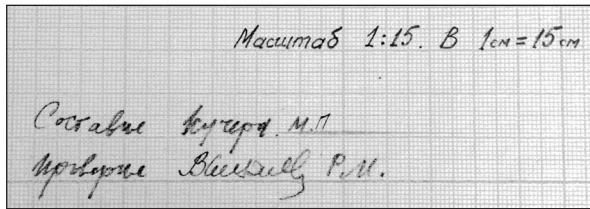 Масштаб 1:15. В 1см = 15см
Составил Кучера М.П
Проверил Р.М.